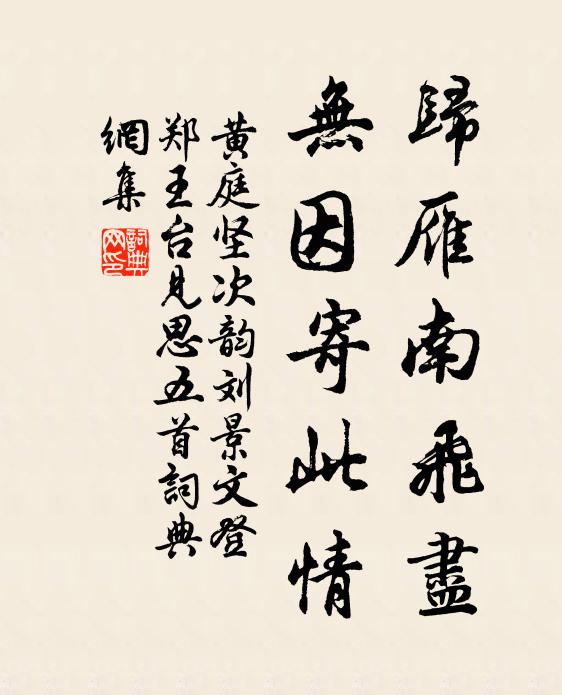 歸雁南飛盡
無因寄此情
黄庭坚次韵刘景文登
郑王台見思五首詞典
網集
詞典
网印